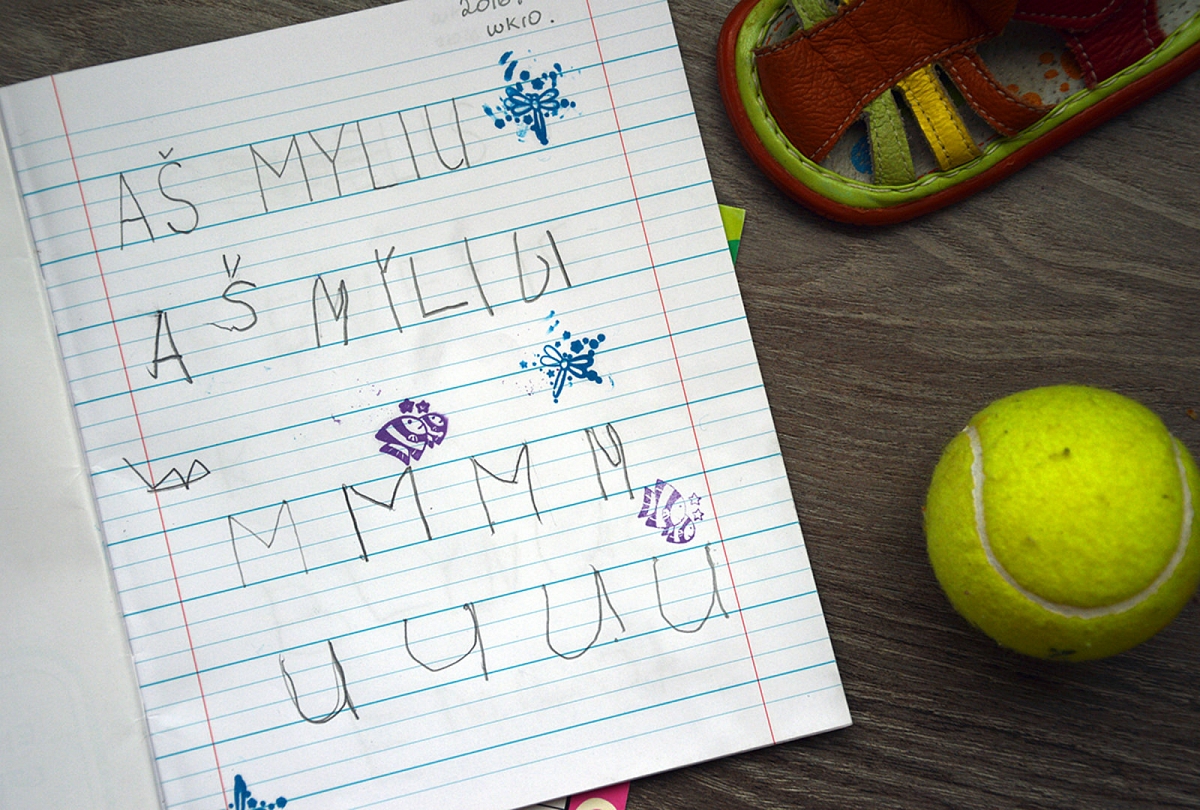 wkro.
AŠ MYLIU
AŠ MYLIU
M M M M
U U U U